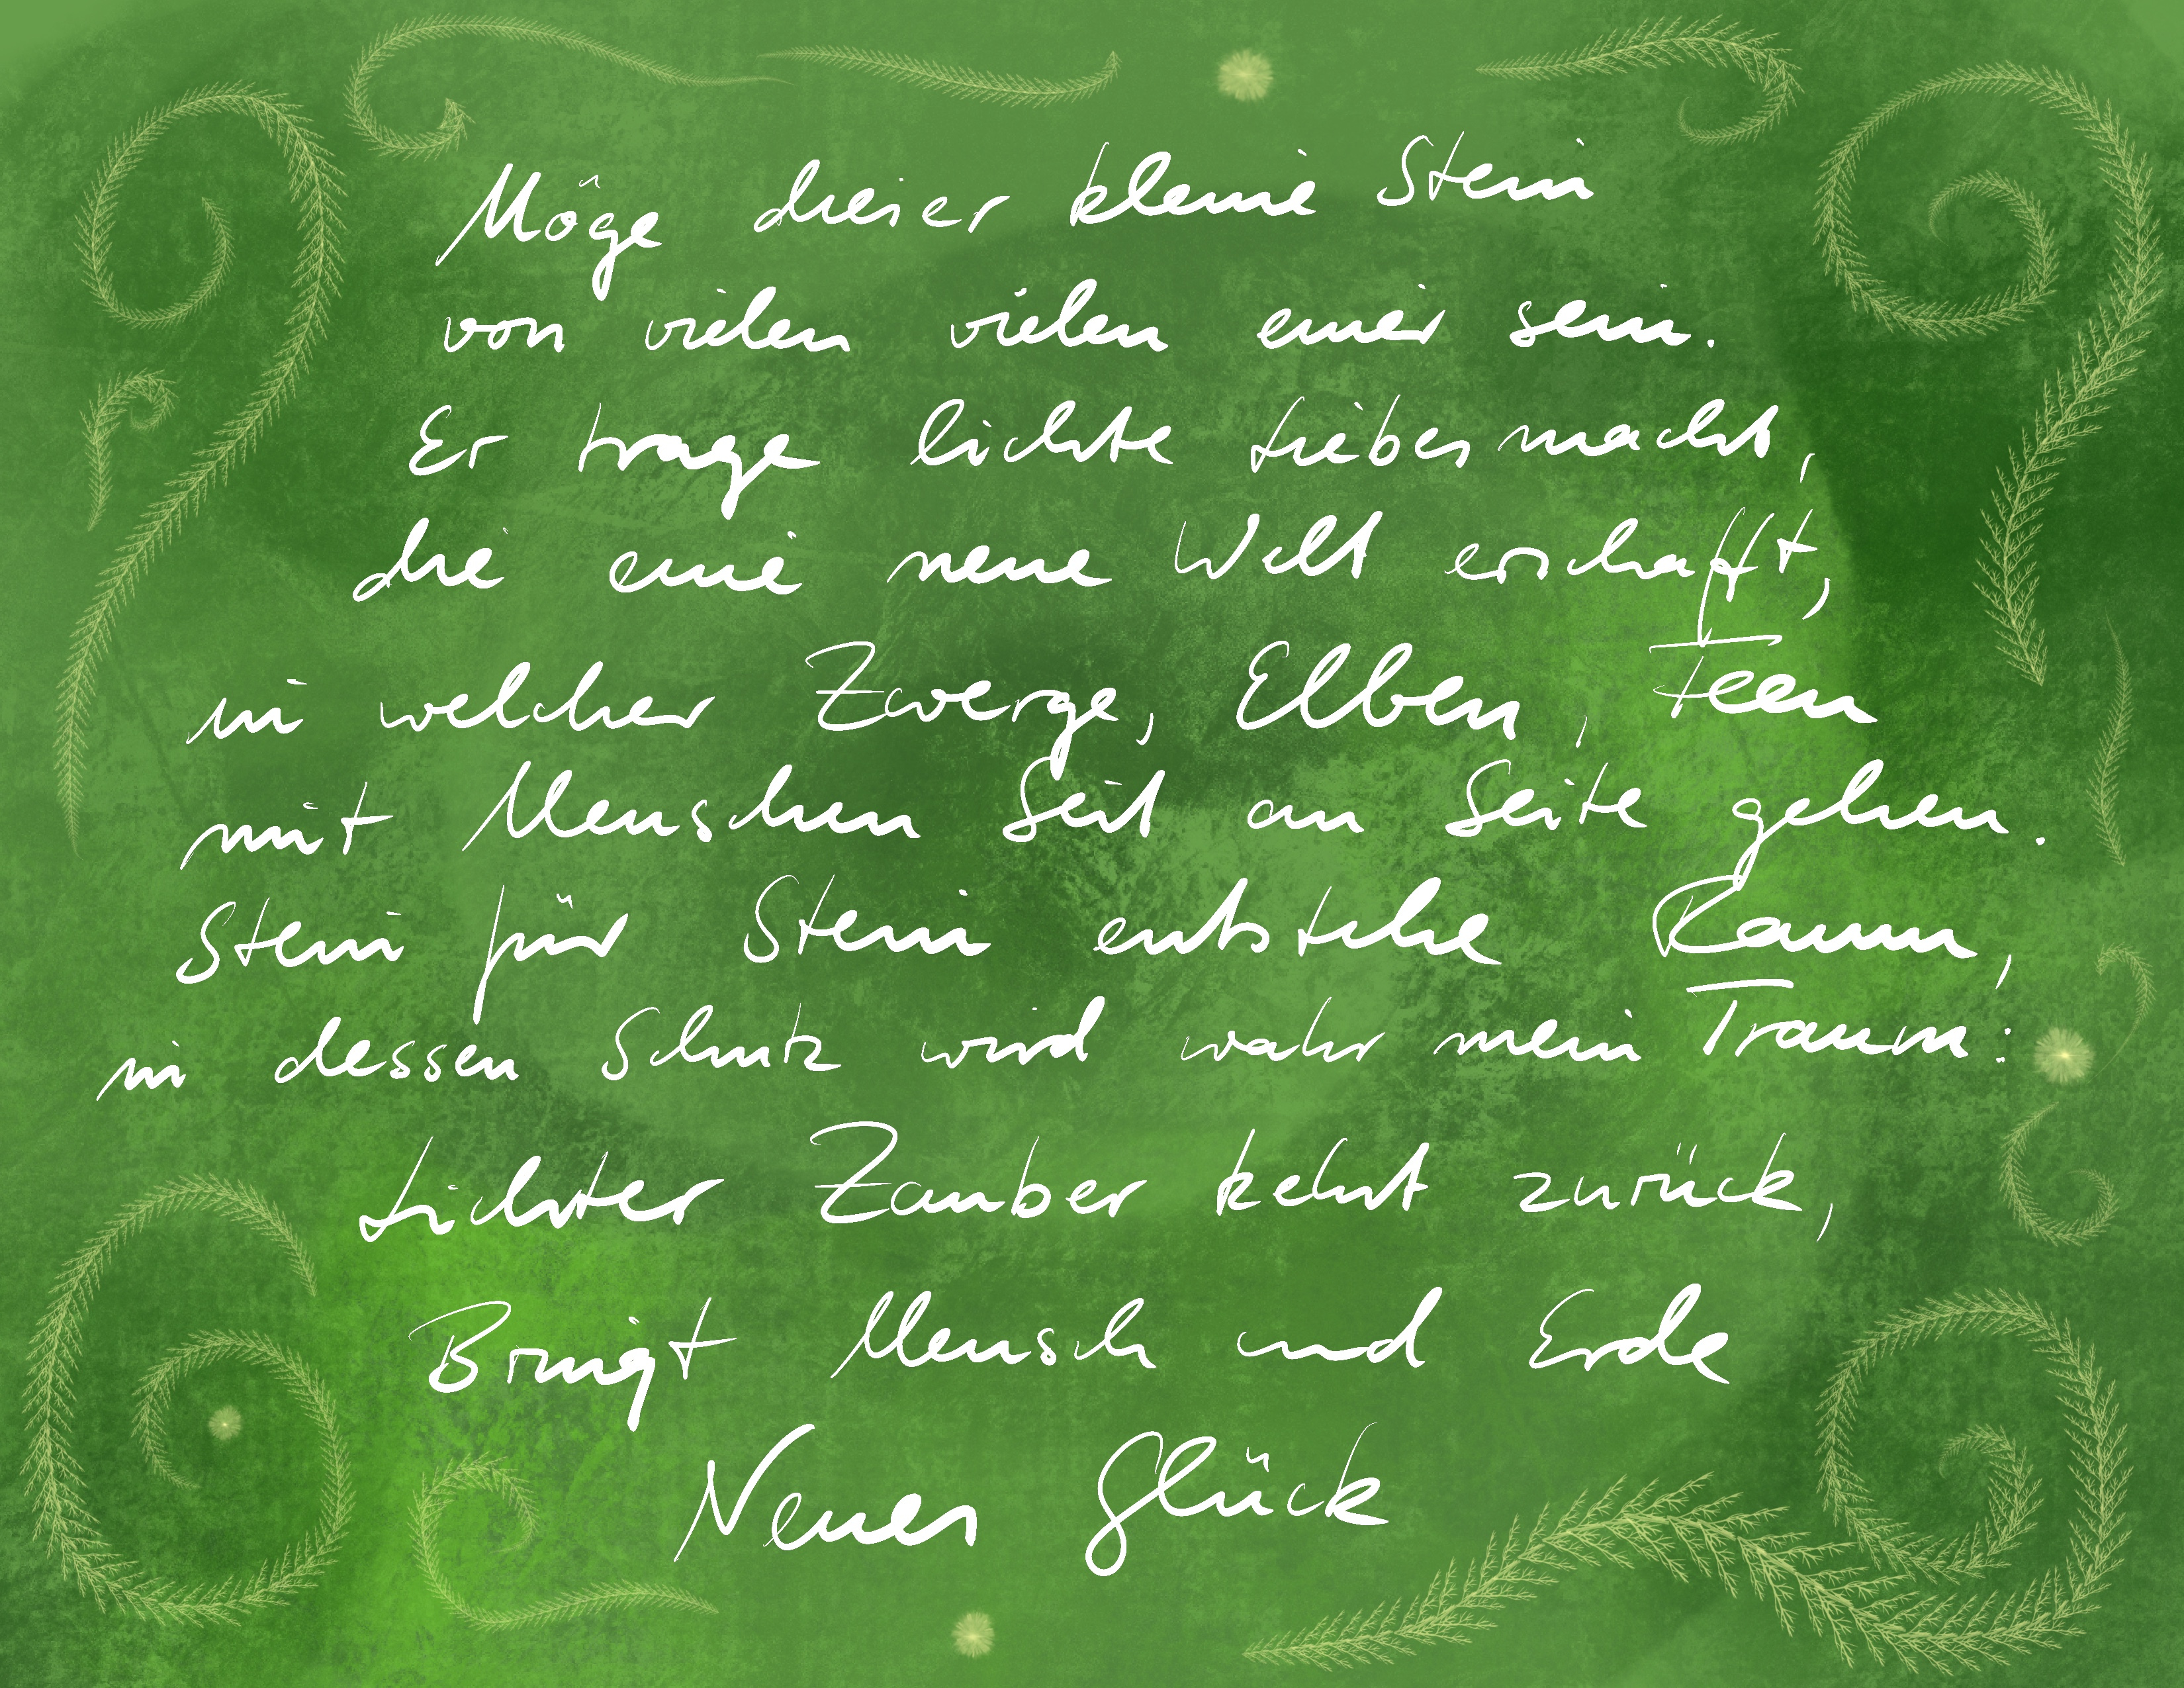 Möge dieser kleine Stein
von vielen vielen einer sein.
Er trage lichte Liebesmacht,
die eine neue Welt erschafft,
in welcher Zwerge, Elben, Feen
mit Menschen Seit an Seite gehen.
Stein für Stein entstehe Raum,
in dessen Schutz wird wahr mein Traum:
Lichter Zauber kehrt zurück,
Bringt Mensch und Erde
Neues Glück